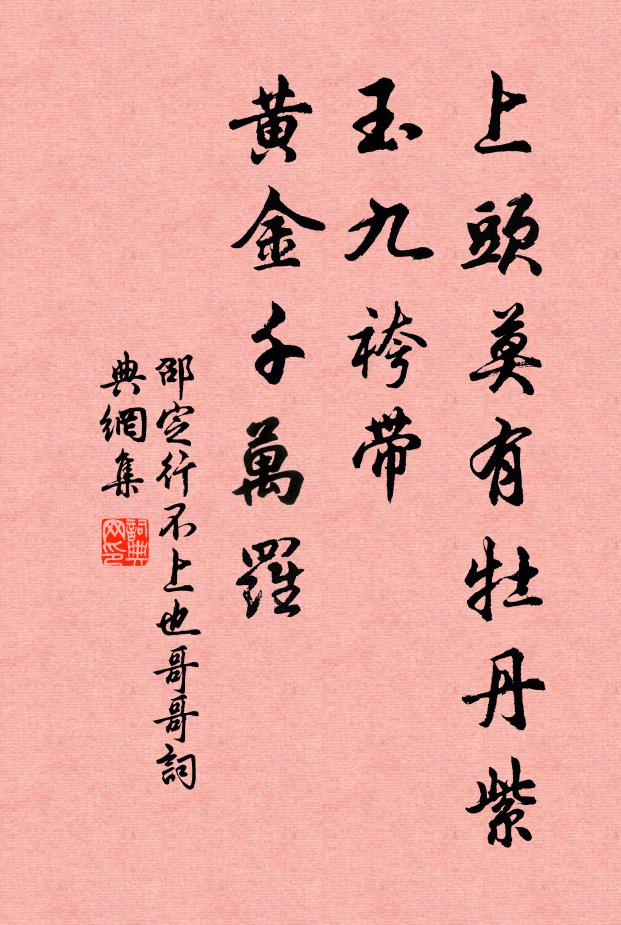 上頭莫有牡丹紫
玉九袴帶
黃金千萬羅
邵定行不上也哥哥詞
典網集
詞典
网印